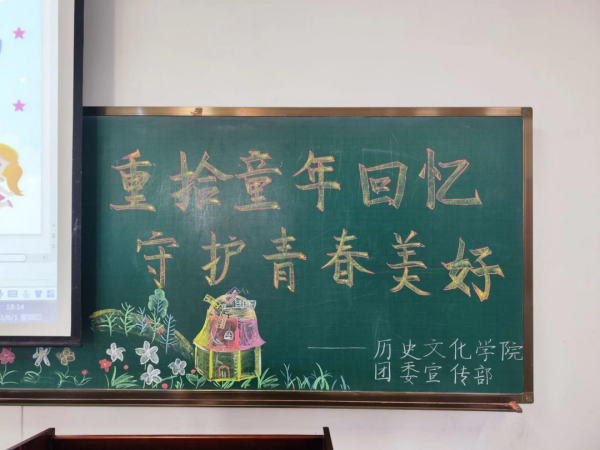 重拾童年回忆
守护青春美好
——历史文化学院
团委宣传部